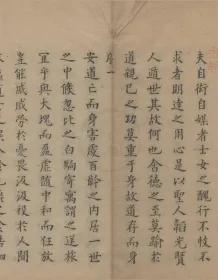 夫自衒自媒者士女之醜行不忮不
求者明達之用心是以聖人韜光賢
人遁世其故何也含德之至莫踰於
道親己之切無重於身故道存而身
序一
安道亡而身害處百齡之內居一世
之中倏忽比之白駒寄寓謂之逆旅
宜乎與大塊而盈虛隨中和而任放
豈能戚戚勞於憂畏汲汲役於人間